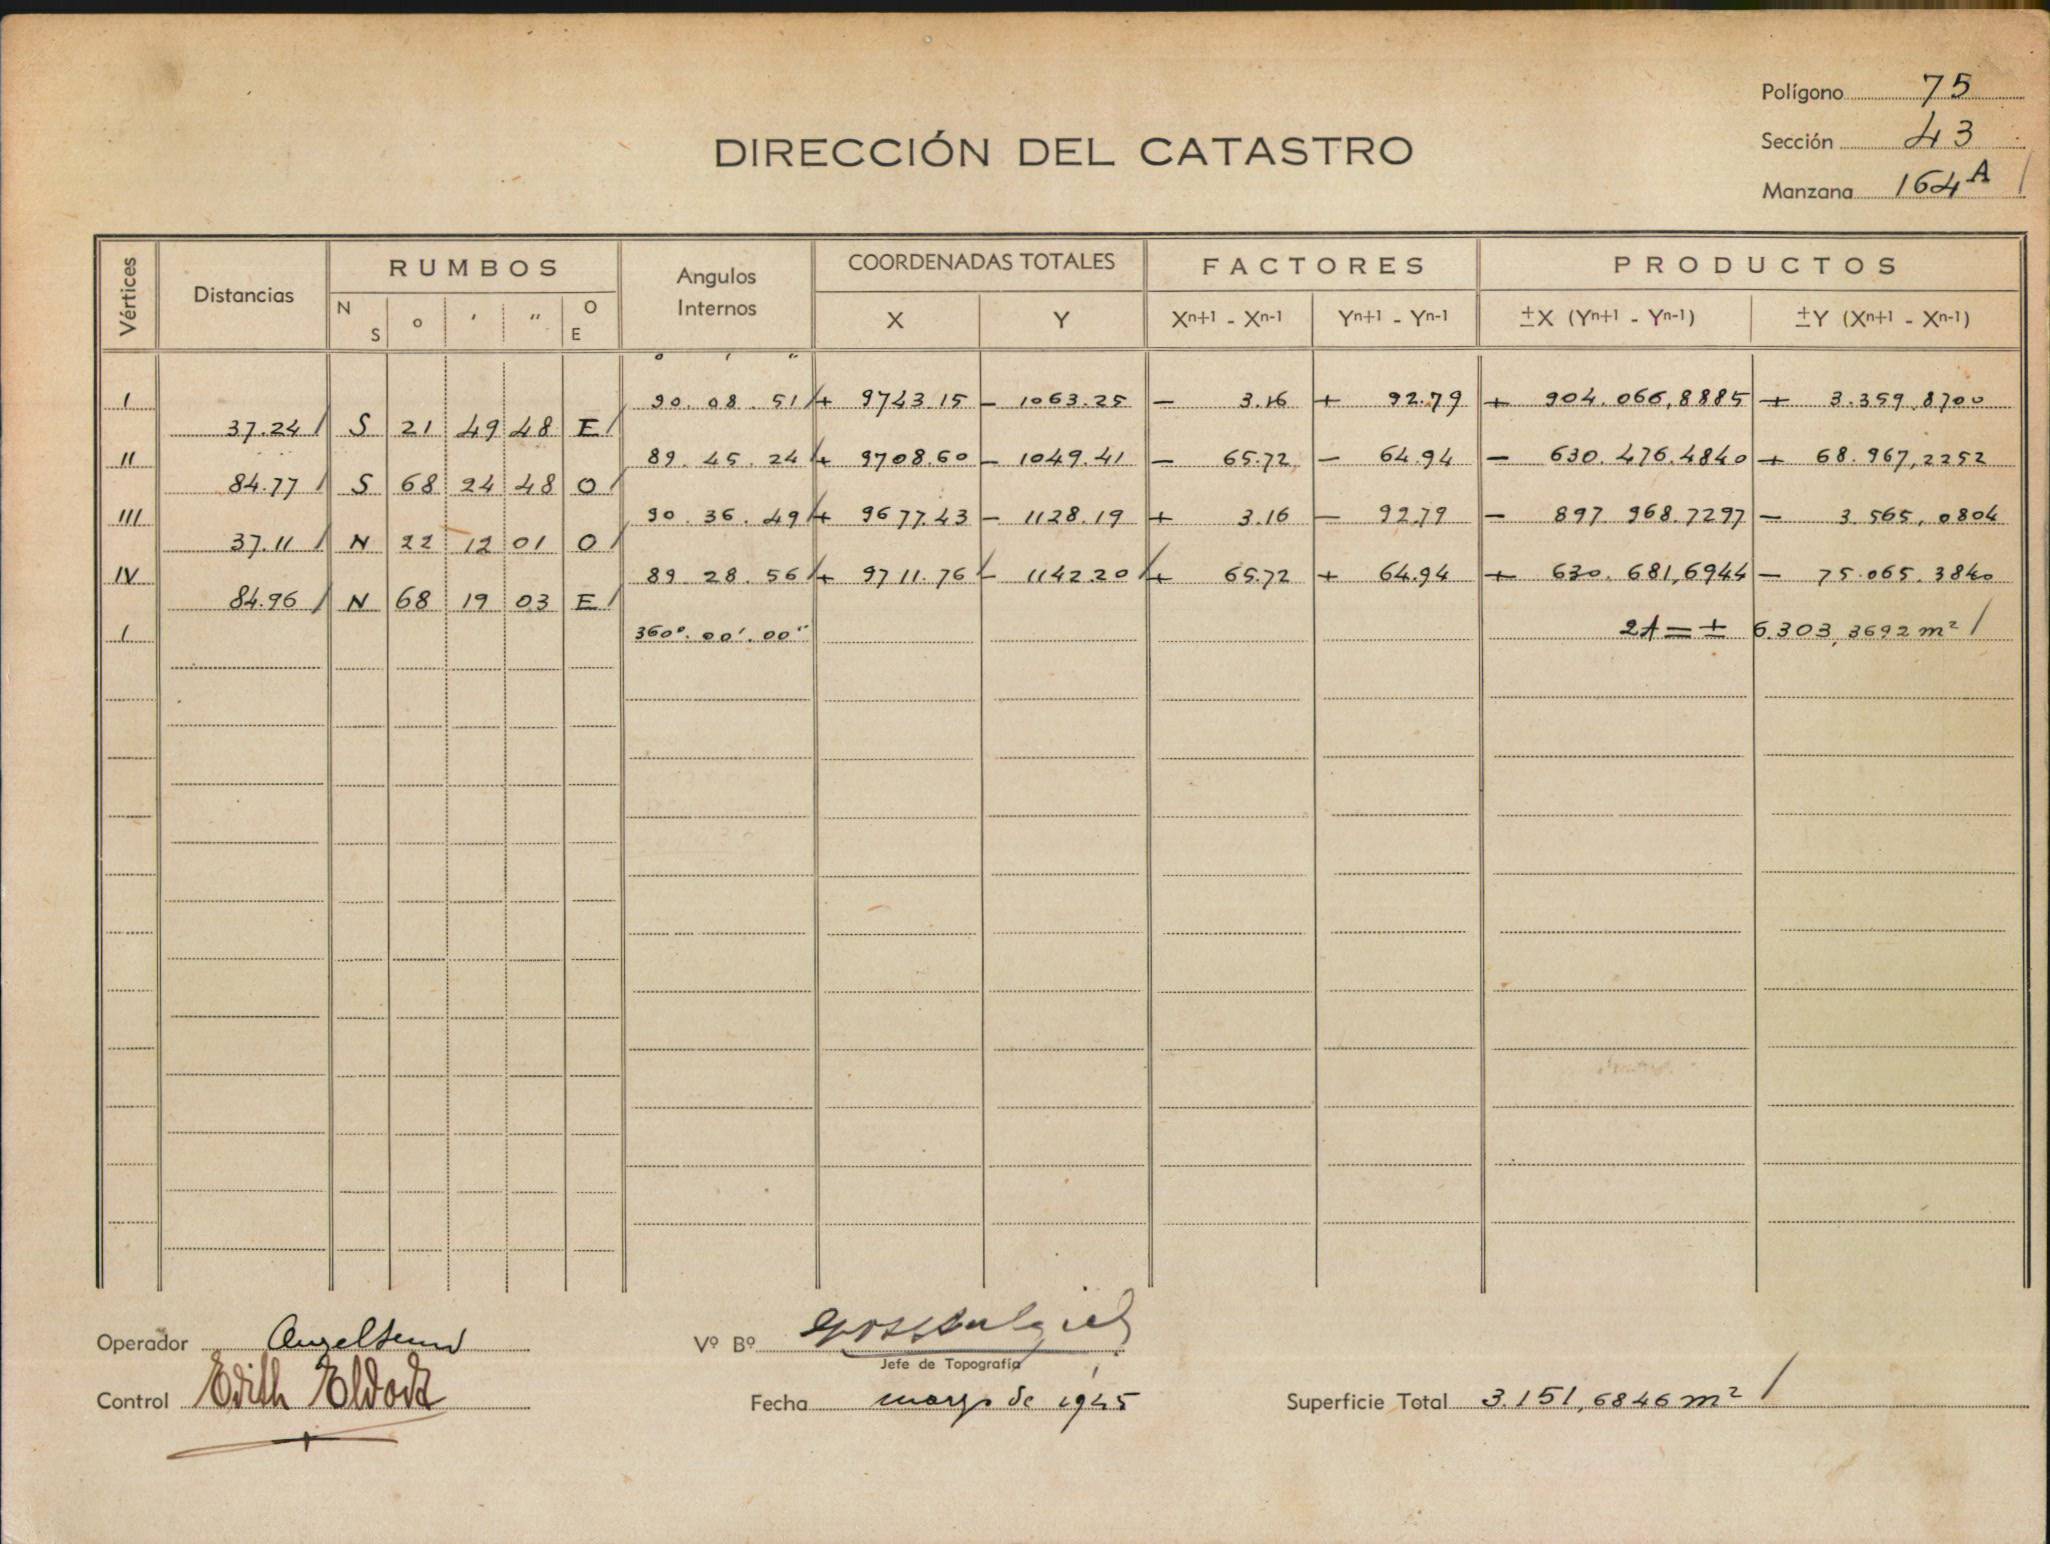 Polígono 75
Sección 43
Manzana 164 A
DIRECCIÓN DEL CATASTRO
Vértices Distancias RUMBOS Angulos Internos COORDENADAS TOTALES FACTORES PRODUCTOS
N S o ' " O E X Y Xn+1 - Xn-1 Yn+1 - Yn-1 ±X (Yn+1 - Yn-1) ±Y (Xn+1 - Xn-1)
o ' "
I 90. 08. 51 + 9743.15 - 1063.25 - 3.16 + 92.79 + 904.066,8885 + 3.359,8700
37.24 S 21 49 48 E
II 89. 45. 24 + 9708.60 - 1049.41 - 65.72 - 64.94 - 630.476.4840 + 68.967,2252
84.77 S 68 24 48 O
III 90. 36. 49 + 9677.43 - 1128.19 + 3.16 - 92.79 - 897.968.7297 - 3.565,0804
37.11 N 22 12 01 O
IV 89 28. 56 + 9711.76 - 1142.20 + 65.72 + 64.94 + 630.681,6944 - 75.065.3840
84.96 N 68 19 03 E
I 360°. 00'. 00" 2A = ± 6.303,3692 m²
Operador Vº Bº
Jefe de Topografía
Control Edith Eldodt
Fecha marzo de 1945 Superficie Total 3.151,6846 m²